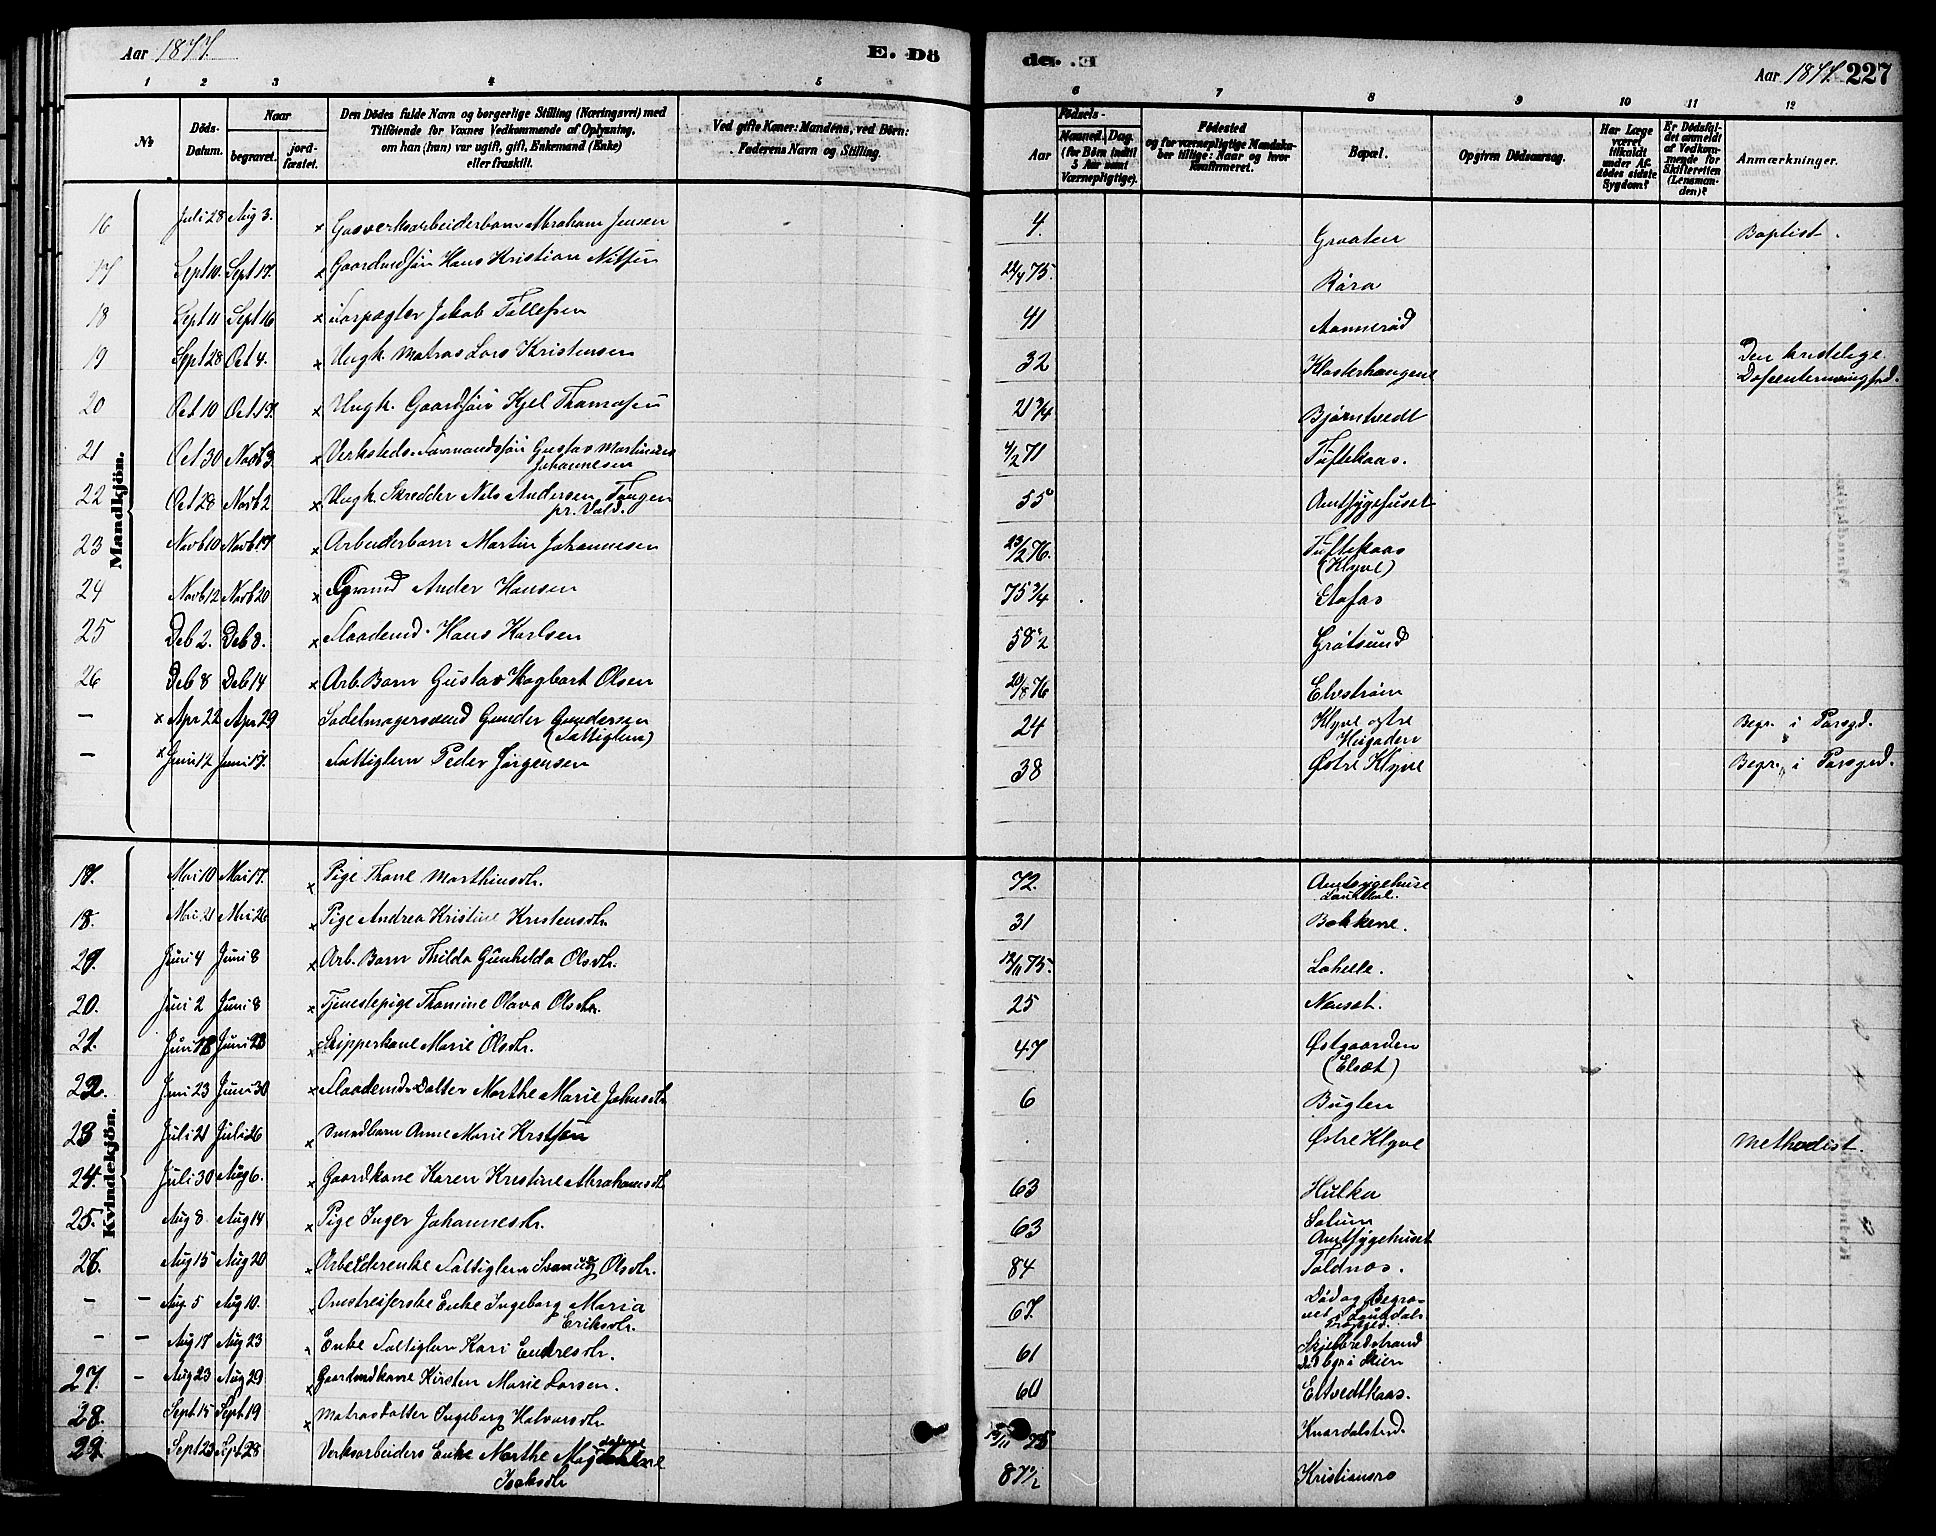 Aar 1877.
E. Dö
de. E.
Aar 1877. 227
1 2 3 4 5 6 7 8 9 10 11 12
No
Döds-Datum.
Naar
begravet.
jordfæstet.
Den Dödes fulde Navn og borgerlige Stilling (Næringsvei) med
Tilföiende for Voxnes Vedkommende af Oplysning,
om han (hun) var ugift, gift, Enkemand (Enke)
eller fraskilt.
Ved gifte Koner: Mandens, ved Börn:
Faderens Navn og Stilling.
Födsels-
Aar
Maaned. Dag.
(for Börn indtil
5 Aar samt
Værnepligtige).
Födested
og for værnepligtige Mandska-
ber tillige: Naar og hvor
Konfirmeret.
Bopæl.
Opgiven Dödsaarsag.
Har Læge
været
tilkaldt
under Af-
dödes sidste
Sygdom?
Er Dödsfal-
det anmeldt
af Vedkom-
mende for
Skifteretten
(Lensman-
den)?
Anmærkninger.
Mandkjön.
16 Juli 28 Aug 3. x Gasverksarbeiderbarn Abraham Jensen 4. Graaten Baptist.
17 Sept 10 Sept 17. x Gaardmdsön Hans Kristian Nilsen 22/4 75. Röra
18 Sept 11 Sept 16 x Forpagter Jakob Tollefsen 41 Aannerød
19 Sept 28 Oct 4. x Ungk. Matros Lars Kristensen 32 Klosterhaugene Den kristelige
Dissentermenighed.
20 Oct 10 Oct 17. x Ungk. Gaardsön Kjel Thomasen 21 3/4 Bjørntvedt
21 Oct 30 Novb 3. x Verksteds-Formandssön Gustav Martinius
Johannesen 4/2 71 Tuftekaas.
22 Oct 28 Novb 2 x Ungk. Skredder Nils Andersen Tangen
pr. Vald. 55 Amtssygehuset
23 Novb 10 Novb 17. x Arbeiderbarn Martin Johannesen 23/2 76. Tuftekaas
(Klyve)
24 Novb 12 Novb 20 x Anders Hansen 75 3/4
25 Deb 2. Deb 8. x Flaademd. Hans Karlsen 58 1/2 Grøtsund
26 Deb 8 Deb 14 x Arb. Barn Gustav Hagbart Olsen 20/8 76 Elvestrøm
— x Apr 22 Apr 29 Sadelmagersvend Gunder Gundersen
(Fattiglem) 24 Klyve østre
Heigaden Begr. i Porsgd.
— x Juni 12 Juni 17. Fattiglem Peder Jörgensen 38 Østre Klyve Begr. i Porsgrd.
Kvindekjön.
17. Mai 10 Mai 17. x Pige Thone Marthinsdtr. 72. Amtssygehuset
18. Mai 21 Mai 26 x Pige Andrea Kristine Kristensdtr 31 Bakkene.
29. Juni 4 Juni 8 x Arb. Barn Thilda Gunhilda Olsdtr. 12/11 75. Lahelle.
20. Juni 2 Juni 8 x Tjenestepige Thomine Olava Olsdtr. 25 Nenset.
21. Juni 18 Juni 23 x Skipperkone Marie Olsdtr. 47 Østgaarden
(Elsæt)
22. Juni 23 Juni 30 x Flaademds Datter Marthe Marie Johnsdtr 6 Bugten
23 Juli 21 Juli 26 x Smedbarn Anne Marie Kristjan Østre Klyve Methodist.
24. Juli 30 Aug 6. x Gaardkone Karen Kristine Abrahamsdtr 63 Hulka
25. Aug 8 Aug 14 x Pige Inger Johannesdtr. 63 Solum
Amtssygehuset
26. Aug 15 Aug 20 x Arbeiderenke Fattiglem Olsdtr. 84 Toldnæs.
— — Aug 5 Aug 10. Omstreiferske Enke Ingeborg Maria
Eriksdtr. 67. Död og Begra-
vet i
— — Aug 17 Aug 23 Enke Fattiglem Kari Endresdtr. 61 Skjelbredstrand
27. — Aug 23 Aug 29 x Gaardmdkone Kirsten Marie Larsen. 60 Eltvedtkaas.
28. Sept. 15 Sept. 19 x Matrosdatter Ingeborg Halvorsdtr 13/11 75 Knardalstrd.
29. Sept 23 Sept 28 Verksarbeiders Enke Marthe
Isaksdtr 87 1/2 Kristiansro